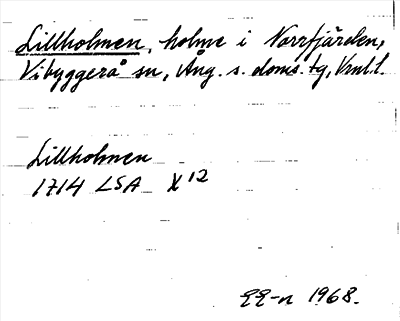 Lillholmen, holme i Norrfjärden,
Vibyggerå sn, Ång. s. doms. tg, Vnl. l.
Lillholmen
1714 LSA X 12
1968.